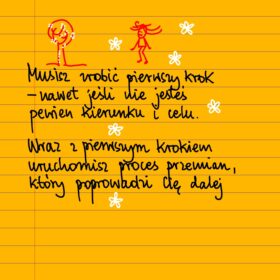 Musisz zrobić pierwszy krok
– nawet jeśli nie jesteś
pewien kierunku i celu.
Wraz z pierwszym krokiem
uruchomisz proces przemian,
który poprowadzi Cię dalej